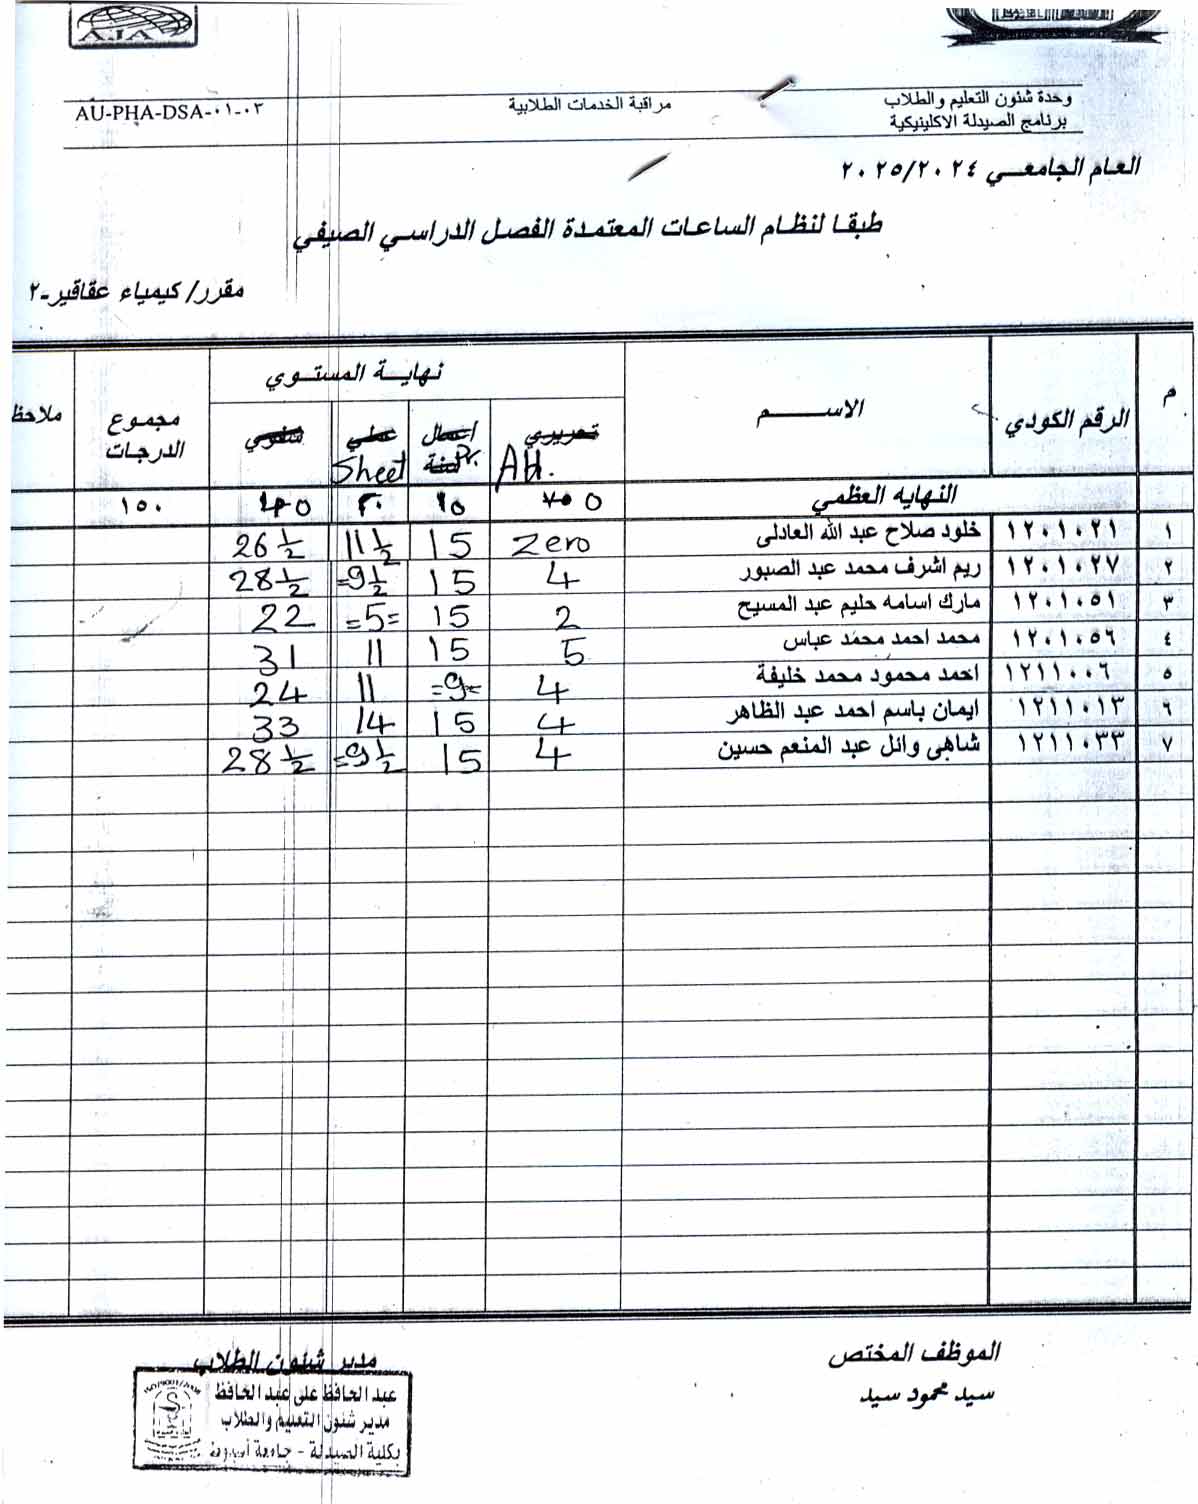 A.J.A
وحدة شئون التعليم والطلاب
برنامج الصيدلة الاكلينيكية
مراقبة الخدمات الطلابية
AU-PHA-DSA-٠١-٠٣
العام الجامعي ٢٠٢٥/٢٠٢٤
طبقا لنظام الساعات المعتمدة الفصل الدراسي الصيفي
مقرر/ كيمياء عقاقير-٢
م الرقم الكودي الاســـم نهاية المستوي مجموع الدرجات ملاحظ
تحريري اعمال السنة عملي شفوي
Att. Pr. Sheet
النهايه العظمي ٥ ١٥ ٢٠ ٤٠ ١٥٠
١ ١٢٠١٠٢١ خلود صلاح عبد الله العادلى Zero 15 11 ½ 26 ½
٢ ١٢٠١٠٢٧ ريم اشرف محمد عبد الصبور 4 15 =9 ½ 28 ½
٣ ١٢٠١٠٥١ مارك اسامه حليم عبد المسيح 2 15 =5= 22
٤ ١٢٠١٠٥٦ محمد احمد محمد عباس 5 15 11 31
٥ ١٢١١٠٠٦ احمد محمود محمد خليفة 4 =9= 11 24
٦ ١٢١١٠١٣ ايمان باسم احمد عبد الظاهر 4 15 14 33
٧ ١٢١١٠٣٣ شاهى وائل عبد المنعم حسين 4 15 =9 ½ 28 ½
الموظف المختص
سيد محمود سيد
مدير شئون الطلاب
عبد الحافظ على عبد الحافظ
مدير شئون التعليم والطلاب
بكلية الصيدلة - جامعة أسيوط